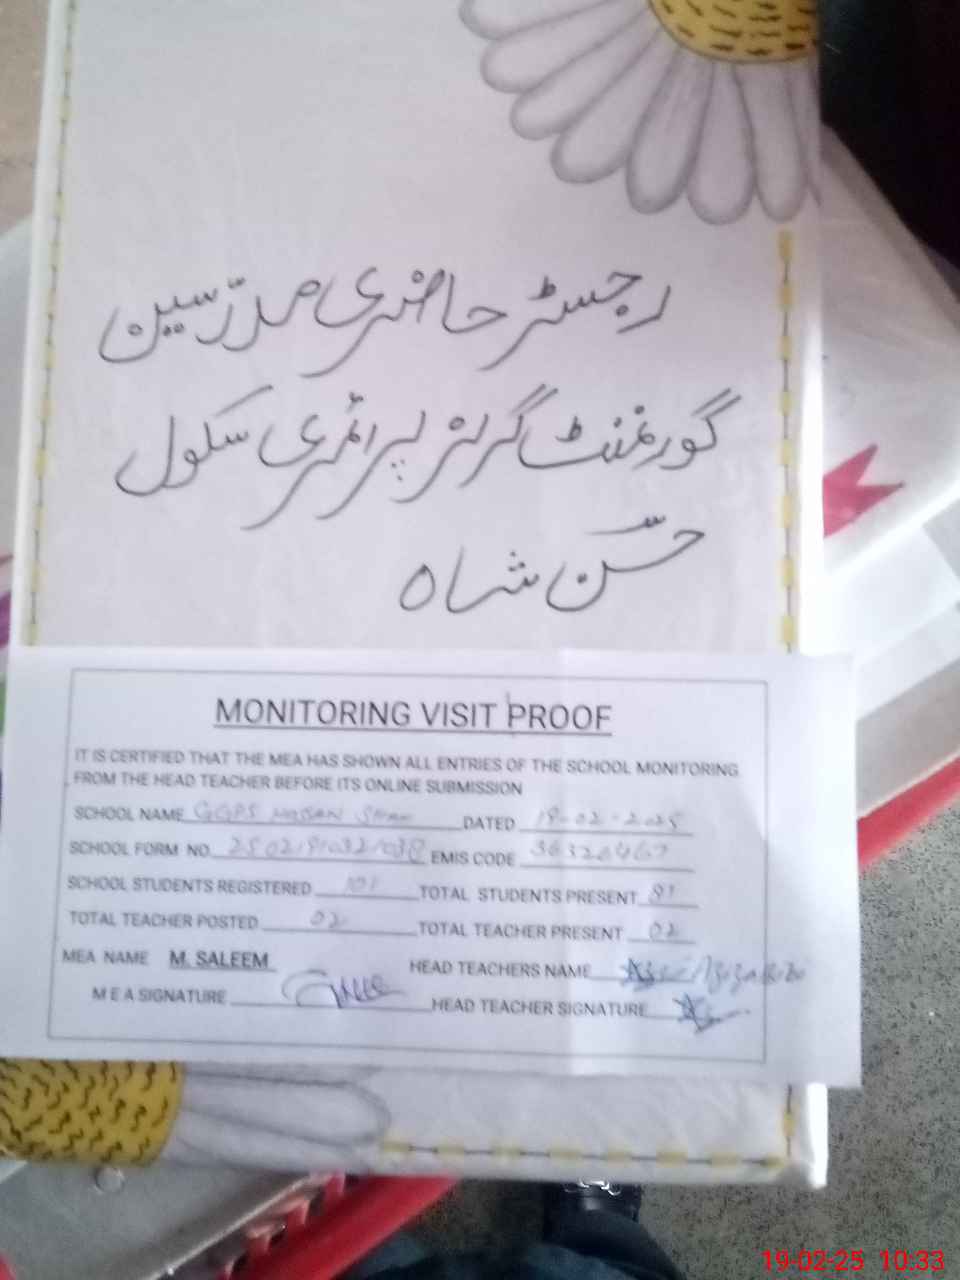 رجسٹر حاضری مدرّسین
گورنمنٹ گرلز پرائمری سکول
حسن شاہ
MONITORING VISIT PROOF
IT IS CERTIFIED THAT THE MEA HAS SHOWN ALL ENTRIES OF THE SCHOOL MONITORING
FROM THE HEAD TEACHER BEFORE ITS ONLINE SUBMISSION
SCHOOL NAME GGPS HASSAN SHAH DATED 19-02-2025
SCHOOL FORM NO. EMIS CODE 36320467
SCHOOL STUDENTS REGISTERED 101 TOTAL STUDENTS PRESENT 81
TOTAL TEACHER POSTED 02 TOTAL TEACHER PRESENT 02
MEA NAME M. SALEEM HEAD TEACHERS NAME
M E A SIGNATURE HEAD TEACHER SIGNATURE
19-02-25 10:33